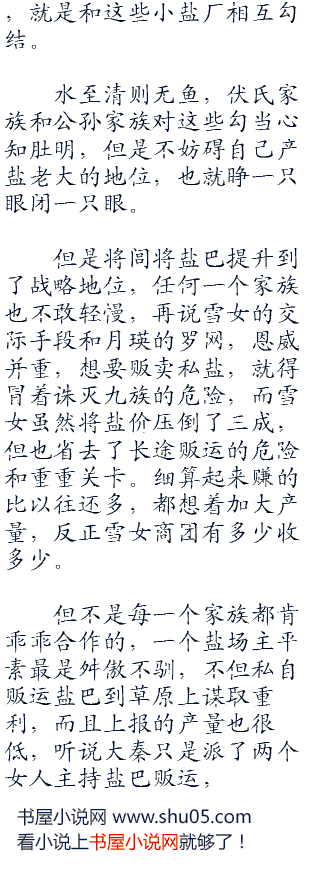 ，就是和这些小盐厂相互勾
结。
水至清则无鱼，伏氏家
族和公孙家族对这些勾当心
知肚明，但是不妨碍自己产
盐老大的地位，也就睁一只
眼闭一只眼。
但是将闾将盐巴提升到
了战略地位，任何一个家族
也不敢轻慢，再说雪女的交
际手段和月瑛的罗网，恩威
并重，想要贩卖私盐，就得
冒着诛灭九族的危险，而雪
女虽然将盐价压倒了三成，
但也省去了长途贩运的危险
和重重关卡。细算起来赚的
比以往还多，都想着加大产
量，反正雪女商团有多少收
多少。
但不是每一个家族都肯
乖乖合作的，一个盐场主平
素最是舛傲不驯，不但私自
贩运盐巴到草原上谋取重
利，而且上报的产量也很
低，听说大秦只是派了两个
女人主持盐巴贩运，
书屋小说网 www.shu05.com
看小说上书屋小说网就够了！